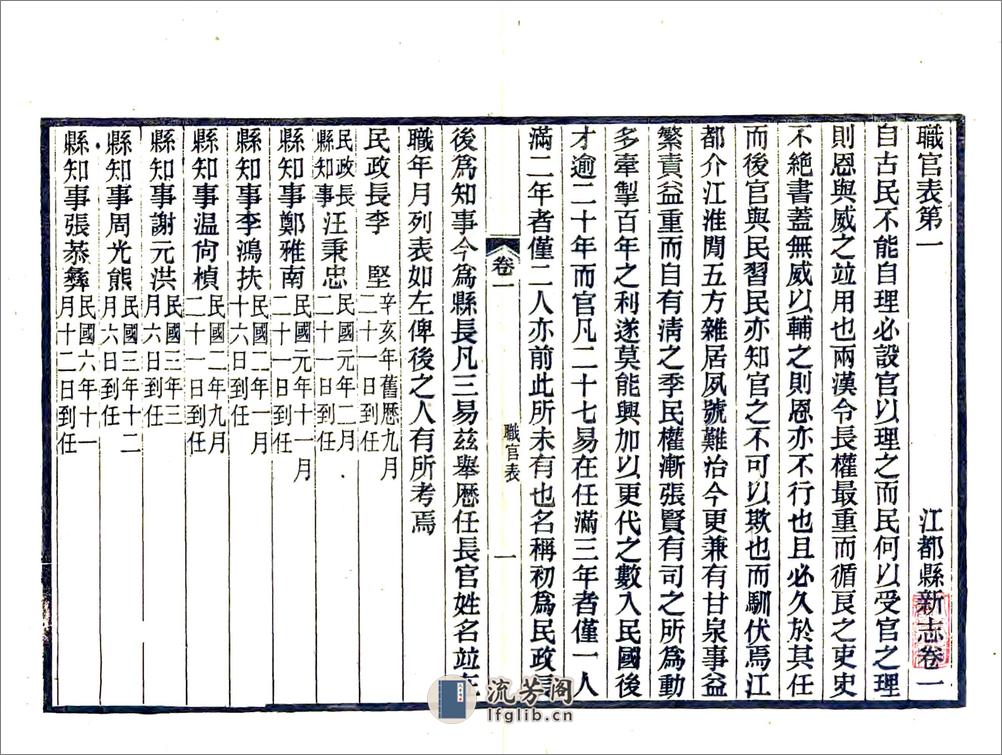 職官表第一 江都縣新志卷一
自古民不能自理必設官以理之而民何以受官之理
則恩與威之竝用也兩漢令長權最重而循良之吏史
不絕書蓋無威以輔之則恩亦不行也且必久於其任
而後官與民習民亦知官之不可以欺也而馴伏焉江
都介江淮閒五方雜居夙號難治今更兼有甘泉事益
繁責益重而自有清之季民權漸張賢有司之所爲動
多牽掣百年之利遂莫能興加以更代之數入民國後
才逾二十年而官凡二十七易在任滿三年者僅一人
滿二年者僅二人亦前此所未有也名稱初爲民政長
卷一 職官表 一
後爲知事今爲縣長凡三易茲舉歷任長官姓名竝在
職年月列表如左俾後之人有所考焉
民政長李 堅 辛亥年舊歷九月二十一日到任
民政長縣知事汪秉忠 民國元年二月二十一日到任
縣知事鄭雅南 民國元年十一月二十一日到任
縣知事李鴻扶 民國二年一月十六日到任
縣知事温尙楨 民國二年九月二十一日到任
縣知事謝元洪 民國三年三月六日到任
縣知事周光熊 民國三年十二月六日到任
縣知事張㳟彝 民國六年十一月十二日到任
流芳阁
lfglib.cn